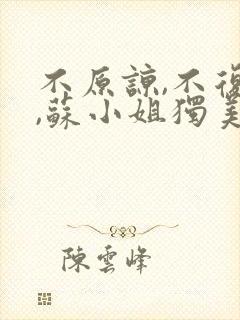 不原諒,不復
,蘇小姐獨美
陳雲峰